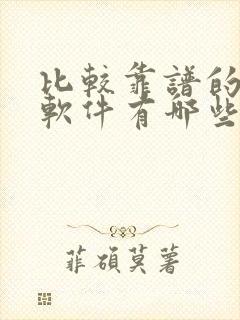 比較靠譜的
軟件有哪些
菲碩莫著